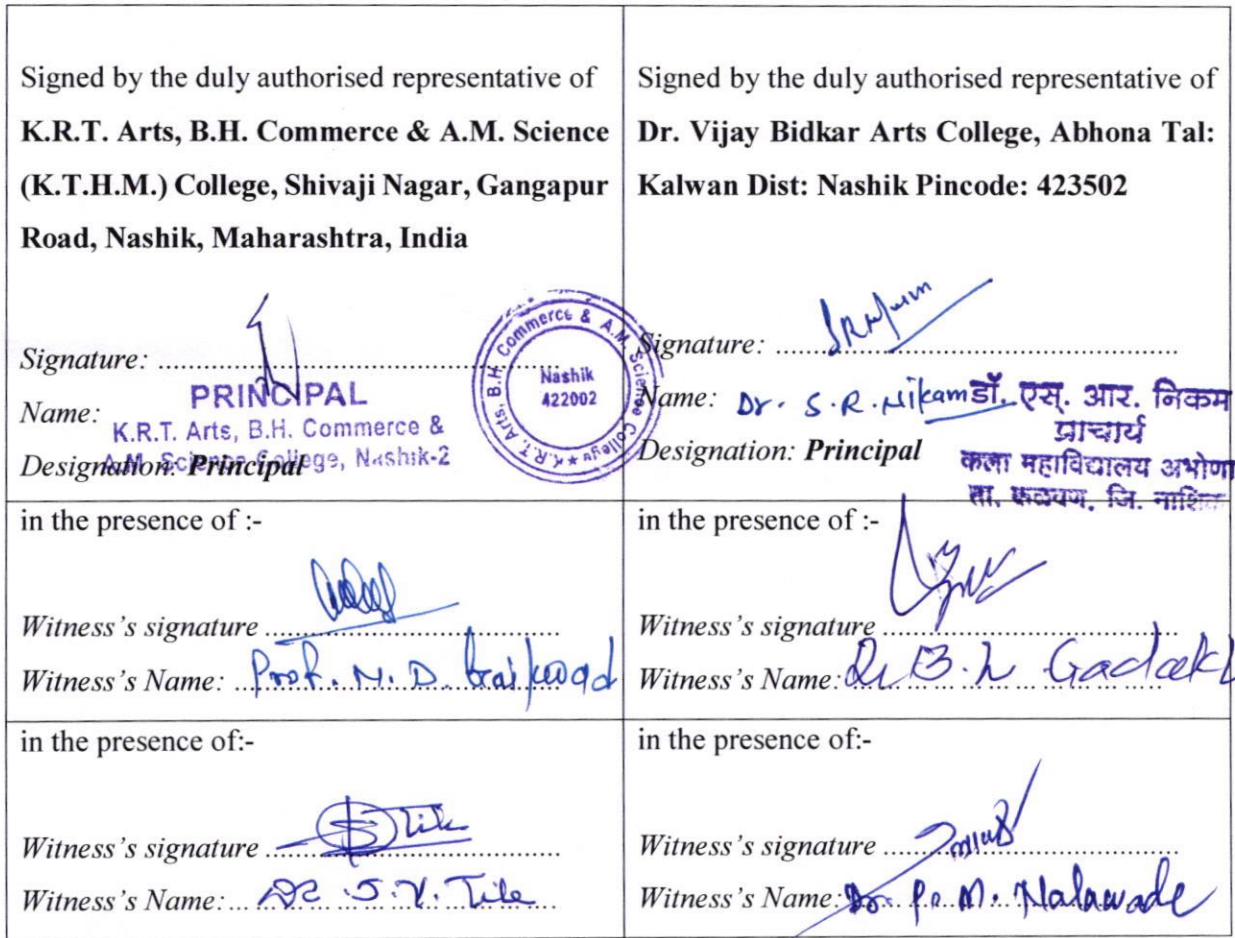 Signed by the duly authorised representative of
K.R.T. Arts, B.H. Commerce & A.M. Science
(K.T.H.M.) College, Shivaji Nagar, Gangapur
Road, Nashik, Maharashtra, India
Signature: ........................................
PRINCIPAL
Name:
K.R.T. Arts, B.H. Commerce &
A.M. Science College, Nashik-2
Designation: Principal
K.R.T. Arts, B.H. Commerce & A.M. Science College
Nashik
422002
Signed by the duly authorised representative of
Dr. Vijay Bidkar Arts College, Abhona Tal:
Kalwan Dist: Nashik Pincode: 423502
Signature: ........................................
Name: Dr. S.R. Nikam
डॉ. एस्. आर. निकम
प्राचार्य
Designation: Principal
कला महाविद्यालय अभोणा
ता. कळवण, जि. नाशिक
in the presence of :-
Witness's signature ........................................
Witness's Name: Prof. N. D. Gaikwad
in the presence of :-
Witness's signature ........................................
Witness's Name: Dr B. Gadakh
in the presence of:-
Witness's signature ........................................
Witness's Name: Dr. S.V. Tile
in the presence of:-
Witness's signature ........................................
Witness's Name: Dr. P. M. Nalawade